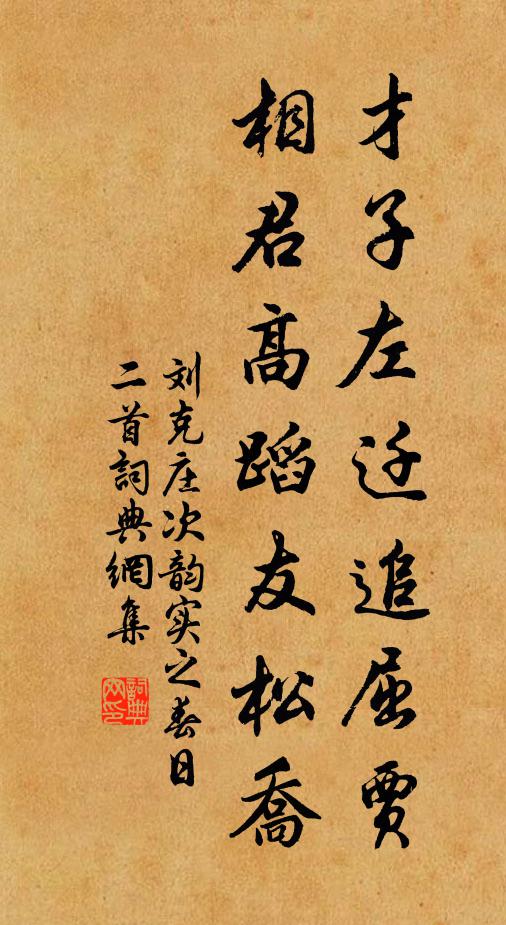 才子左迁追屈贾
相君高蹈友松喬
刘克庄次韵实之春日
二首詞典網集
詞典
网印